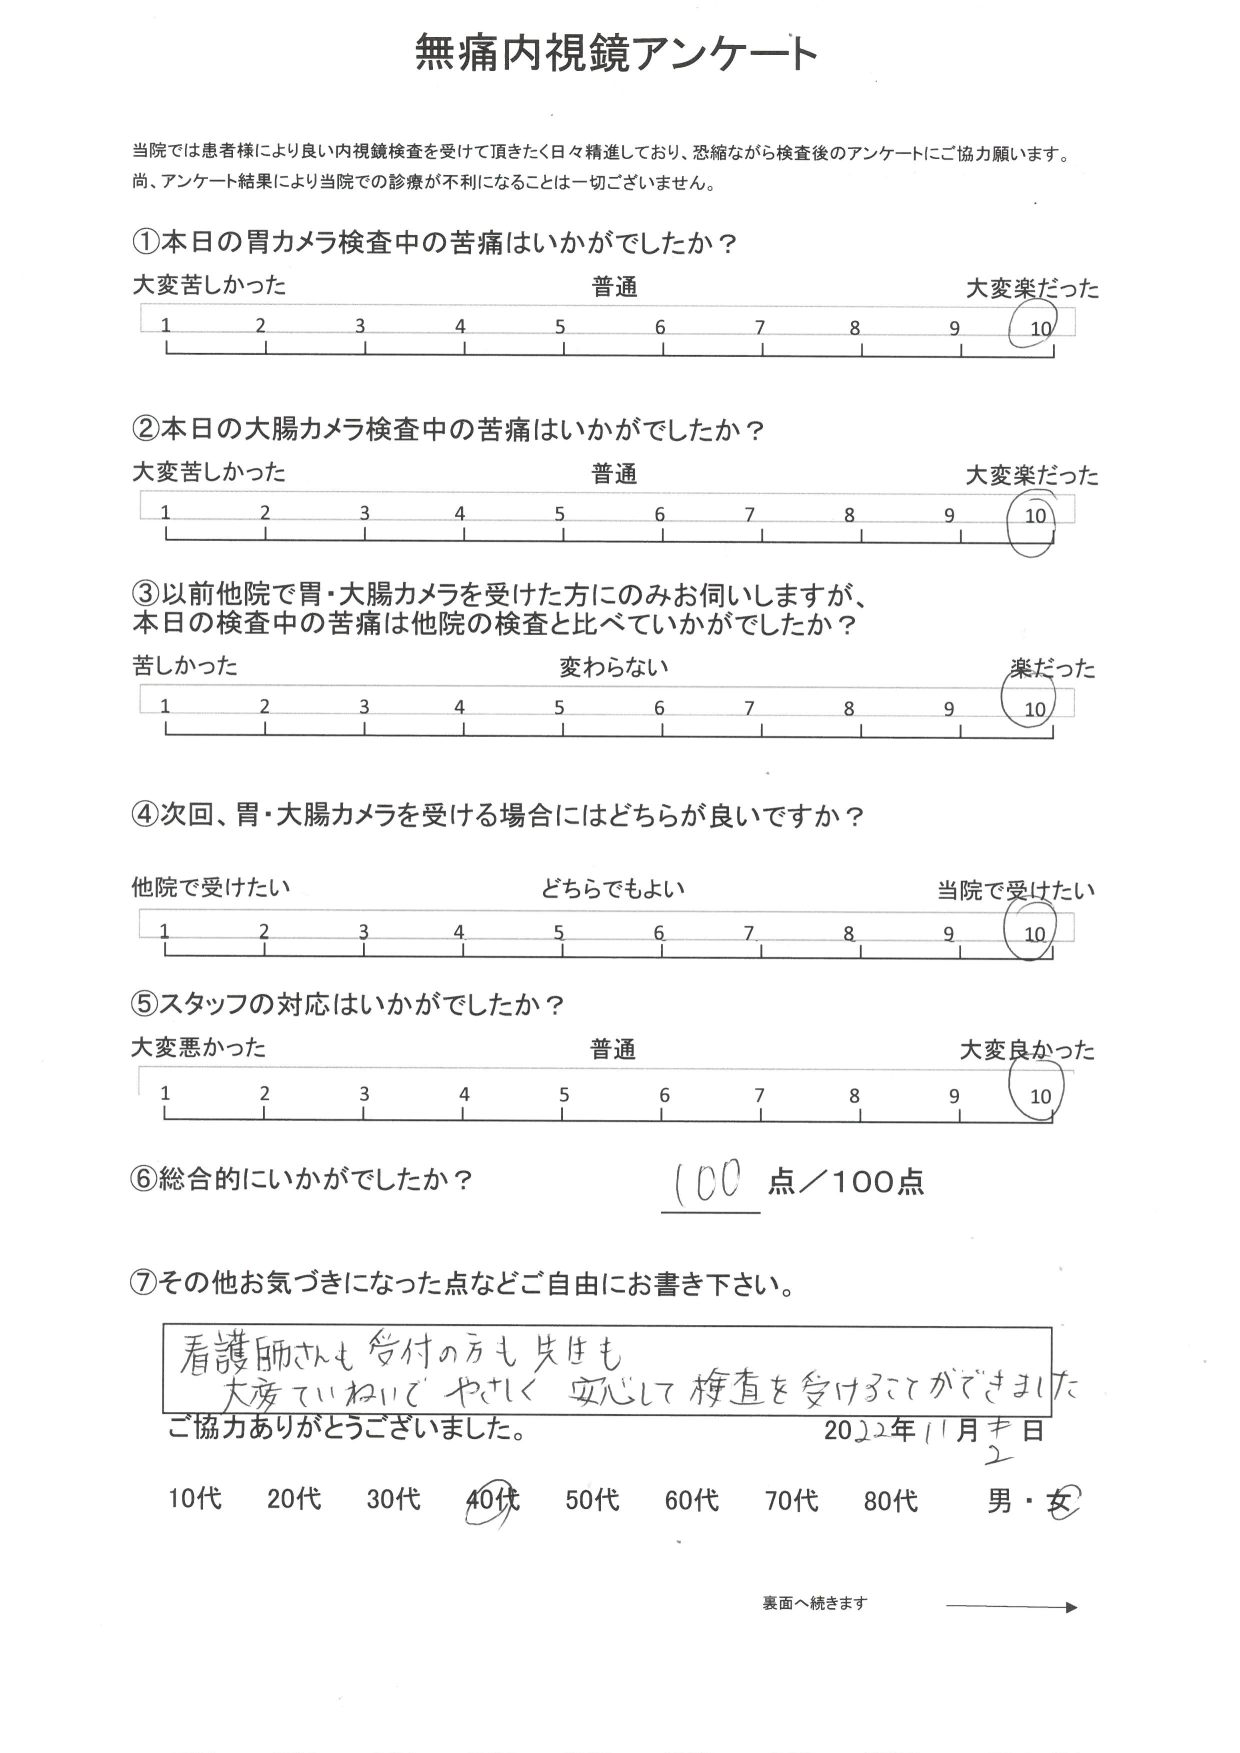 無痛内視鏡アンケート
当院では患者様により良い内視鏡検査を受けて頂きたく日々精進しており、恐縮ながら検査後のアンケートにご協力願います。
尚、アンケート結果により当院での診療が不利になることは一切ございません。
①本日の胃カメラ検査中の苦痛はいかがでしたか？
大変苦しかった 普通 大変楽だった
1 2 3 4 5 6 7 8 9 10
②本日の大腸カメラ検査中の苦痛はいかがでしたか？
大変苦しかった 普通 大変楽だった
1 2 3 4 5 6 7 8 9 10
③以前他院で胃・大腸カメラを受けた方にのみお伺いしますが、
本日の検査中の苦痛は他院の検査と比べていかがでしたか？
苦しかった 変わらない 楽だった
1 2 3 4 5 6 7 8 9 10
④次回、胃・大腸カメラを受ける場合にはどちらが良いですか？
他院で受けたい どちらでもよい 当院で受けたい
1 2 3 4 5 6 7 8 9 10
⑤スタッフの対応はいかがでしたか？
大変悪かった 普通 大変良かった
1 2 3 4 5 6 7 8 9 10
⑥総合的にいかがでしたか？ 100 点／100点
⑦その他お気づきになった点などご自由にお書き下さい。
看護師さんも 受付の方も 先生も
大変ていねいで やさしく 安心して 検査を受けることができました
ご協力ありがとうございました。 2022年11月 日
2
10代 20代 30代 40代 50代 60代 70代 80代 男・女
裏面へ続きます